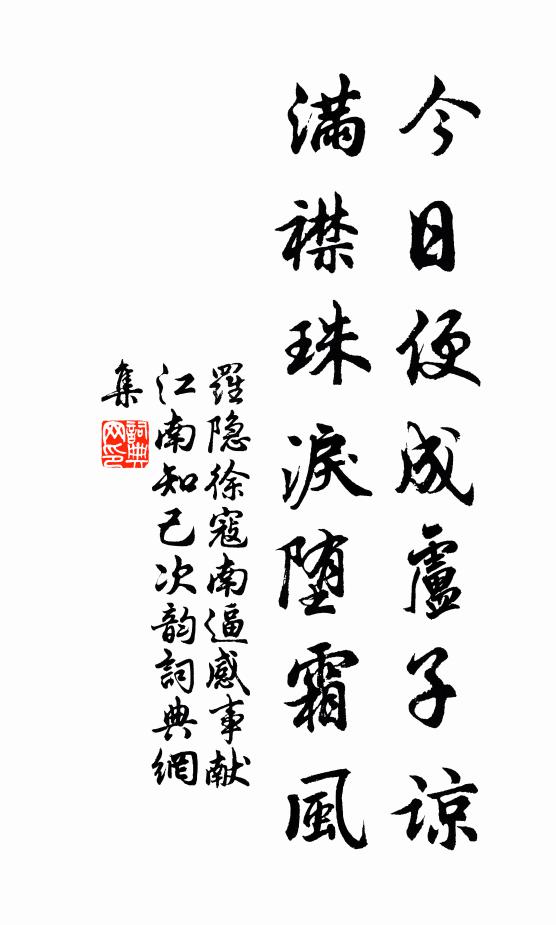 今日便成盧子諒
滿襟珠淚堕霜風
羅隐徐寇南逼感事献
江南知己次韵詞典網
集
詞典网印